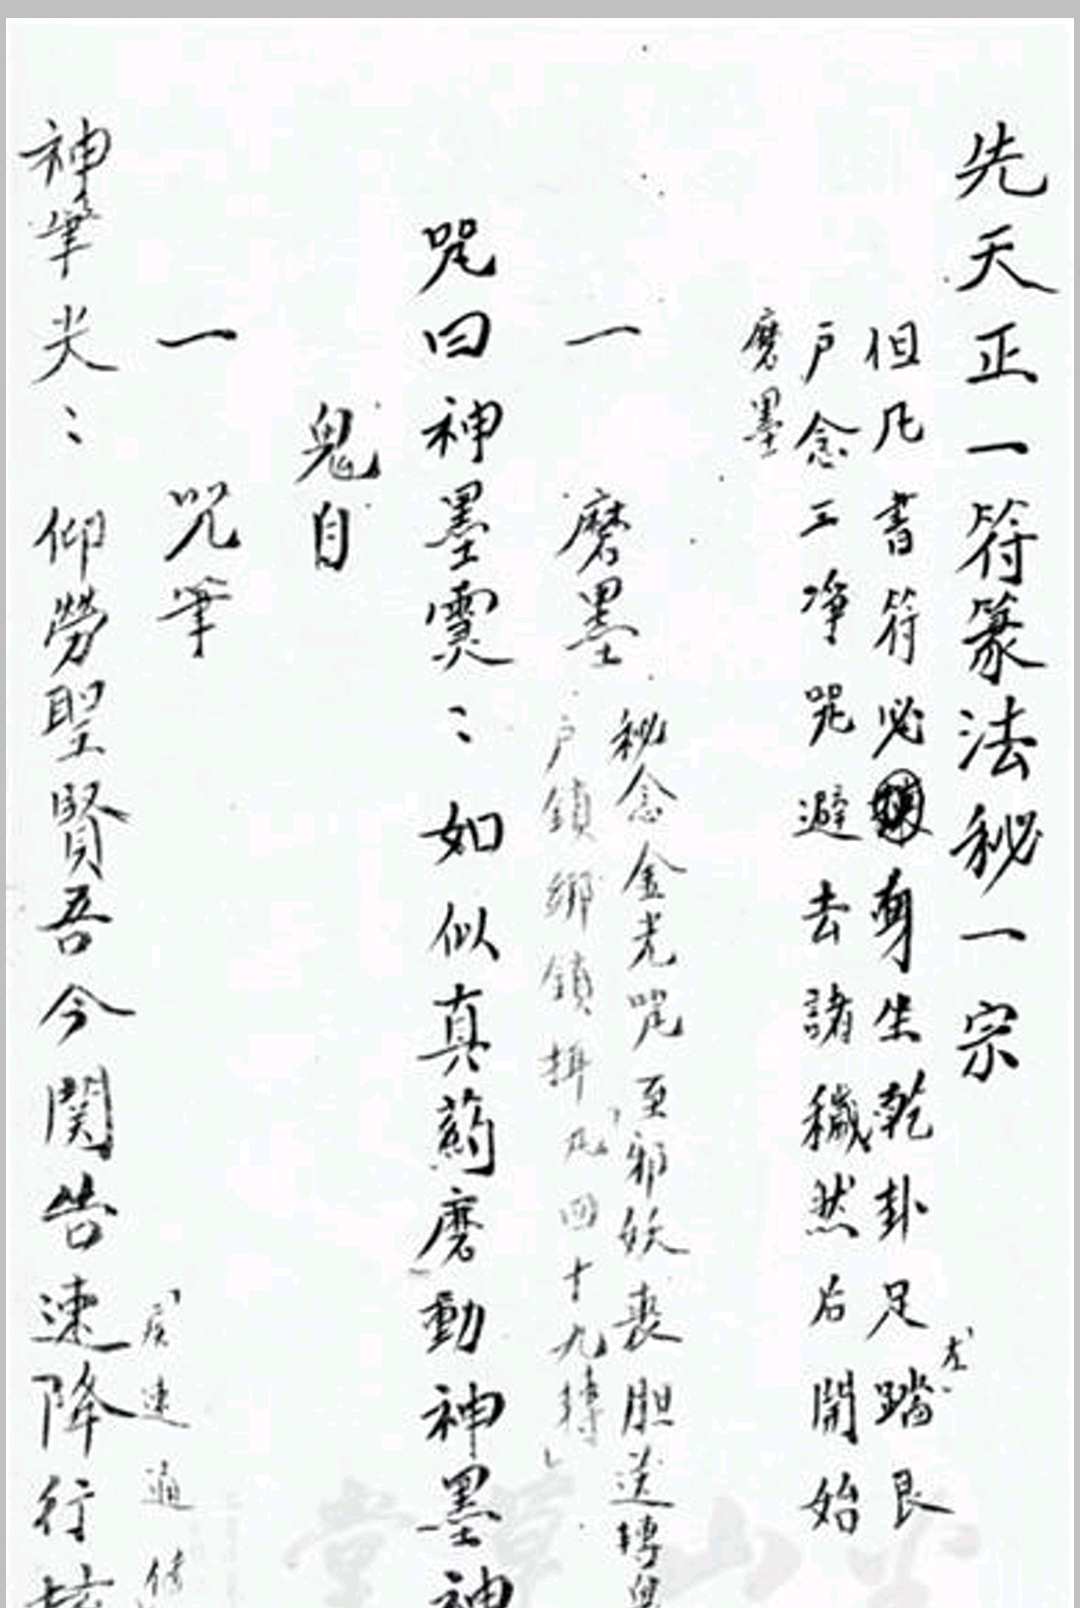 先天正一符篆法秘一宗
但凡書符必身坐乾卦足踏艮
左
戶念三净咒避去諸穢然后開始
磨墨
一 磨墨
秘念金光咒至邪妖喪胆送轉
戶鎖鎖四十九轉
咒曰神墨靈〻如似真藥磨動神墨神
鬼自
一 咒筆
速通
神筆光〻仰勞聖賢吾今関告速降行